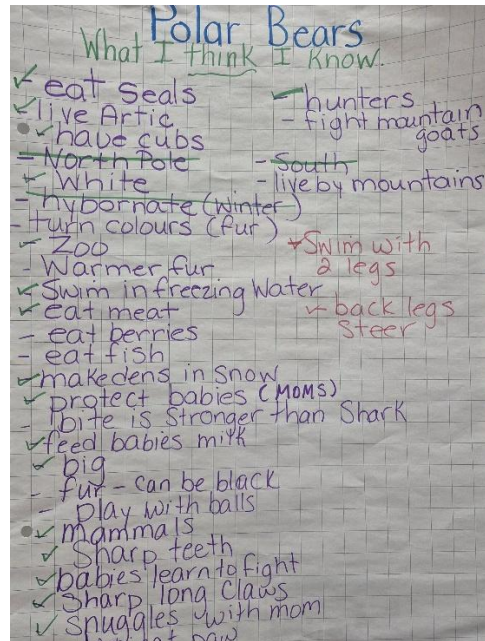 Polar Bears
What I think I know.
✓ eat seals
✓ live Artic
✓ have cubs
- North Pole
✓ White
- hybornate (winter)
- turn colours (fur)
✓ Zoo
- Warmer fur
✓ Swim in freezing Water
✓ eat meat
- eat berries
- eat fish
✓ make dens in snow
✓ protect babies (MOMS)
- bite is Stronger than Shark
✓ feed babies milk
✓ big
- fur - can be black
- play with balls
✓ mammals
✓ Sharp teeth
✓ babies learn to fight
✓ Sharp long Claws
✓ snuggles with mom
paw
✓ hunters
- fight mountain
goats
- South
- live by mountains
✓ Swim with
2 legs
✓ back legs
Steer